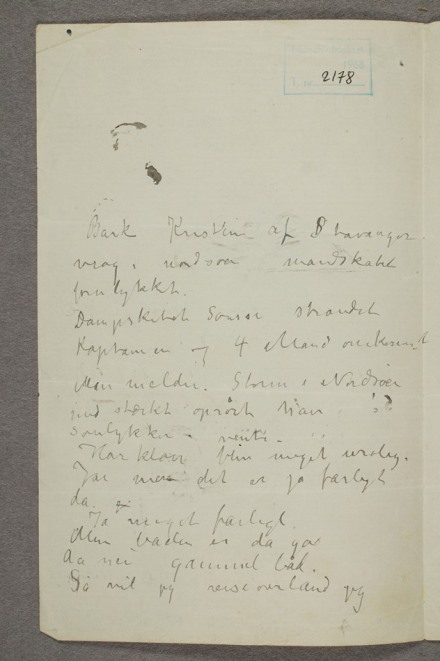 2178
Bark Kristin af Stavanger
vrag, nordsøen mandskabet
forulykket.
Dampskibet strandet
Kaptainen og 4 Mand omkommet
Man melder. Storm i Nordsøen
med stærkt oprørt hav
sørulykker ventes
Har bliv meget urolig.
Jai men det er jo farligt
da.
Ja meget farligt.
Men baaden er da god
Aa nei gammel båd.
Så vil jeg reise overland jeg